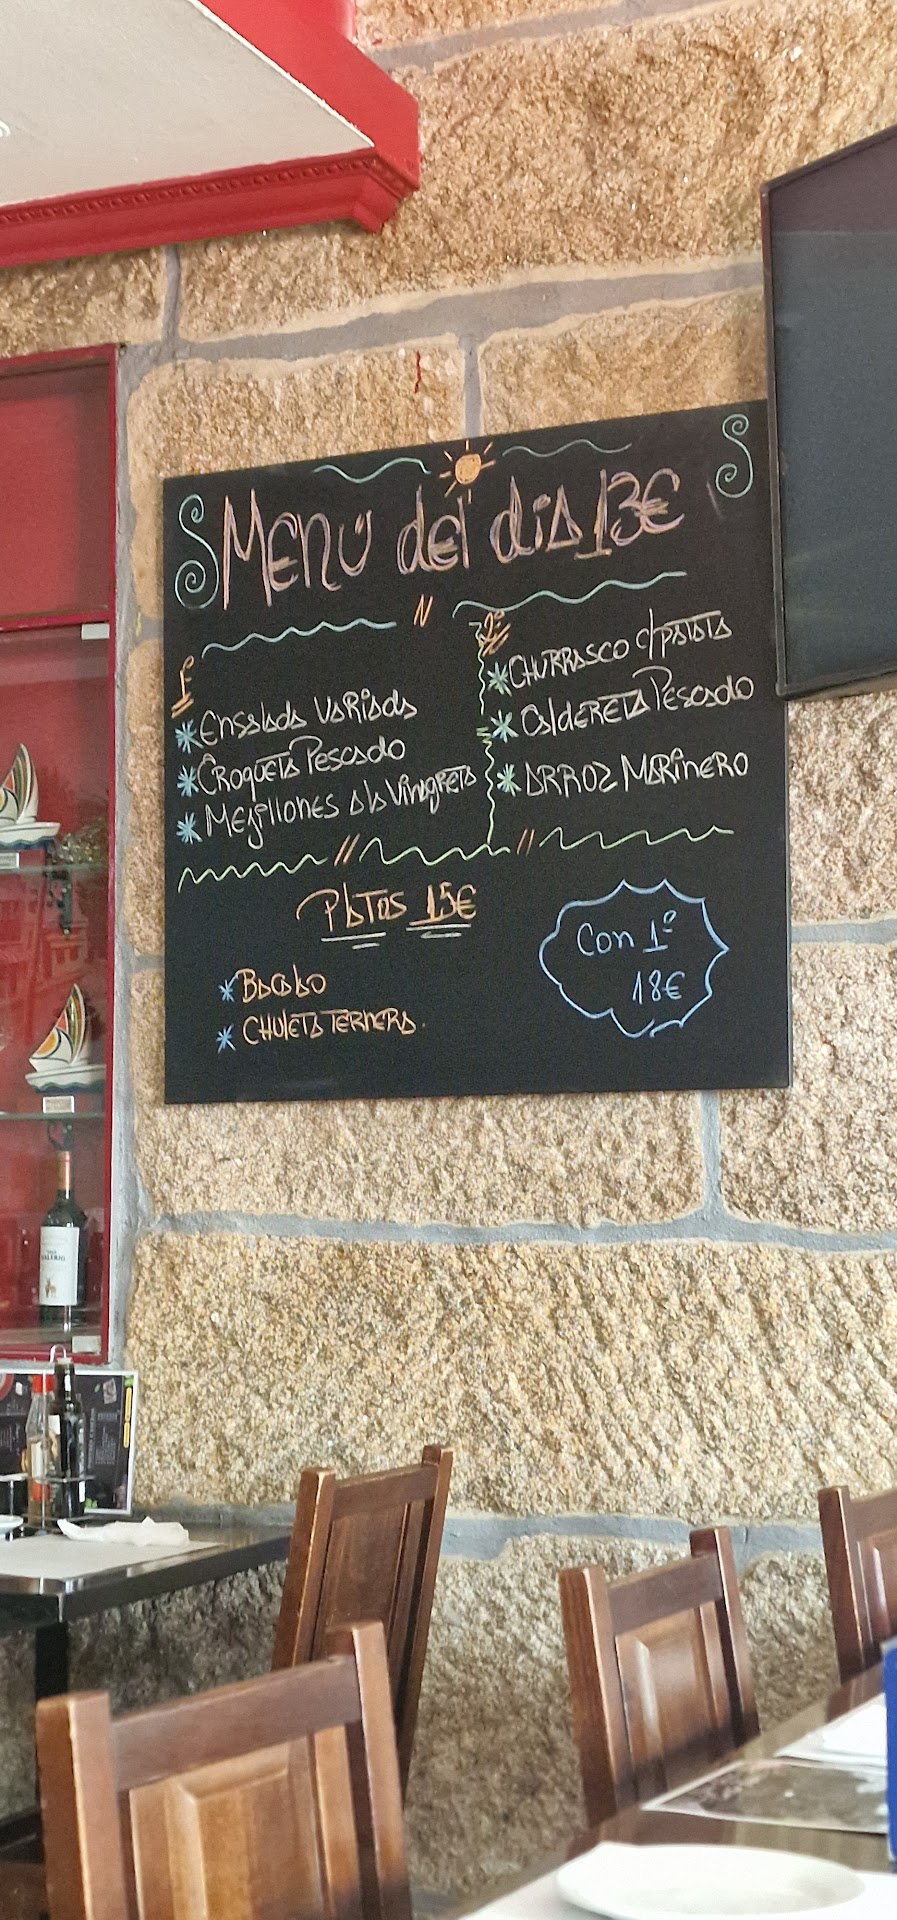 Menú del dia 13€
1º
*Ensalada Variada
*Croqueta Pescado
*Mejillones a la Vinagreta
2º
*CHURRASCO c/patata
*Caldereta Pescado
*ARROZ MARINERO
Platos 15€
*Bacalao
*CHULETA TERNERA.
Con 1º
18€
VALERIO